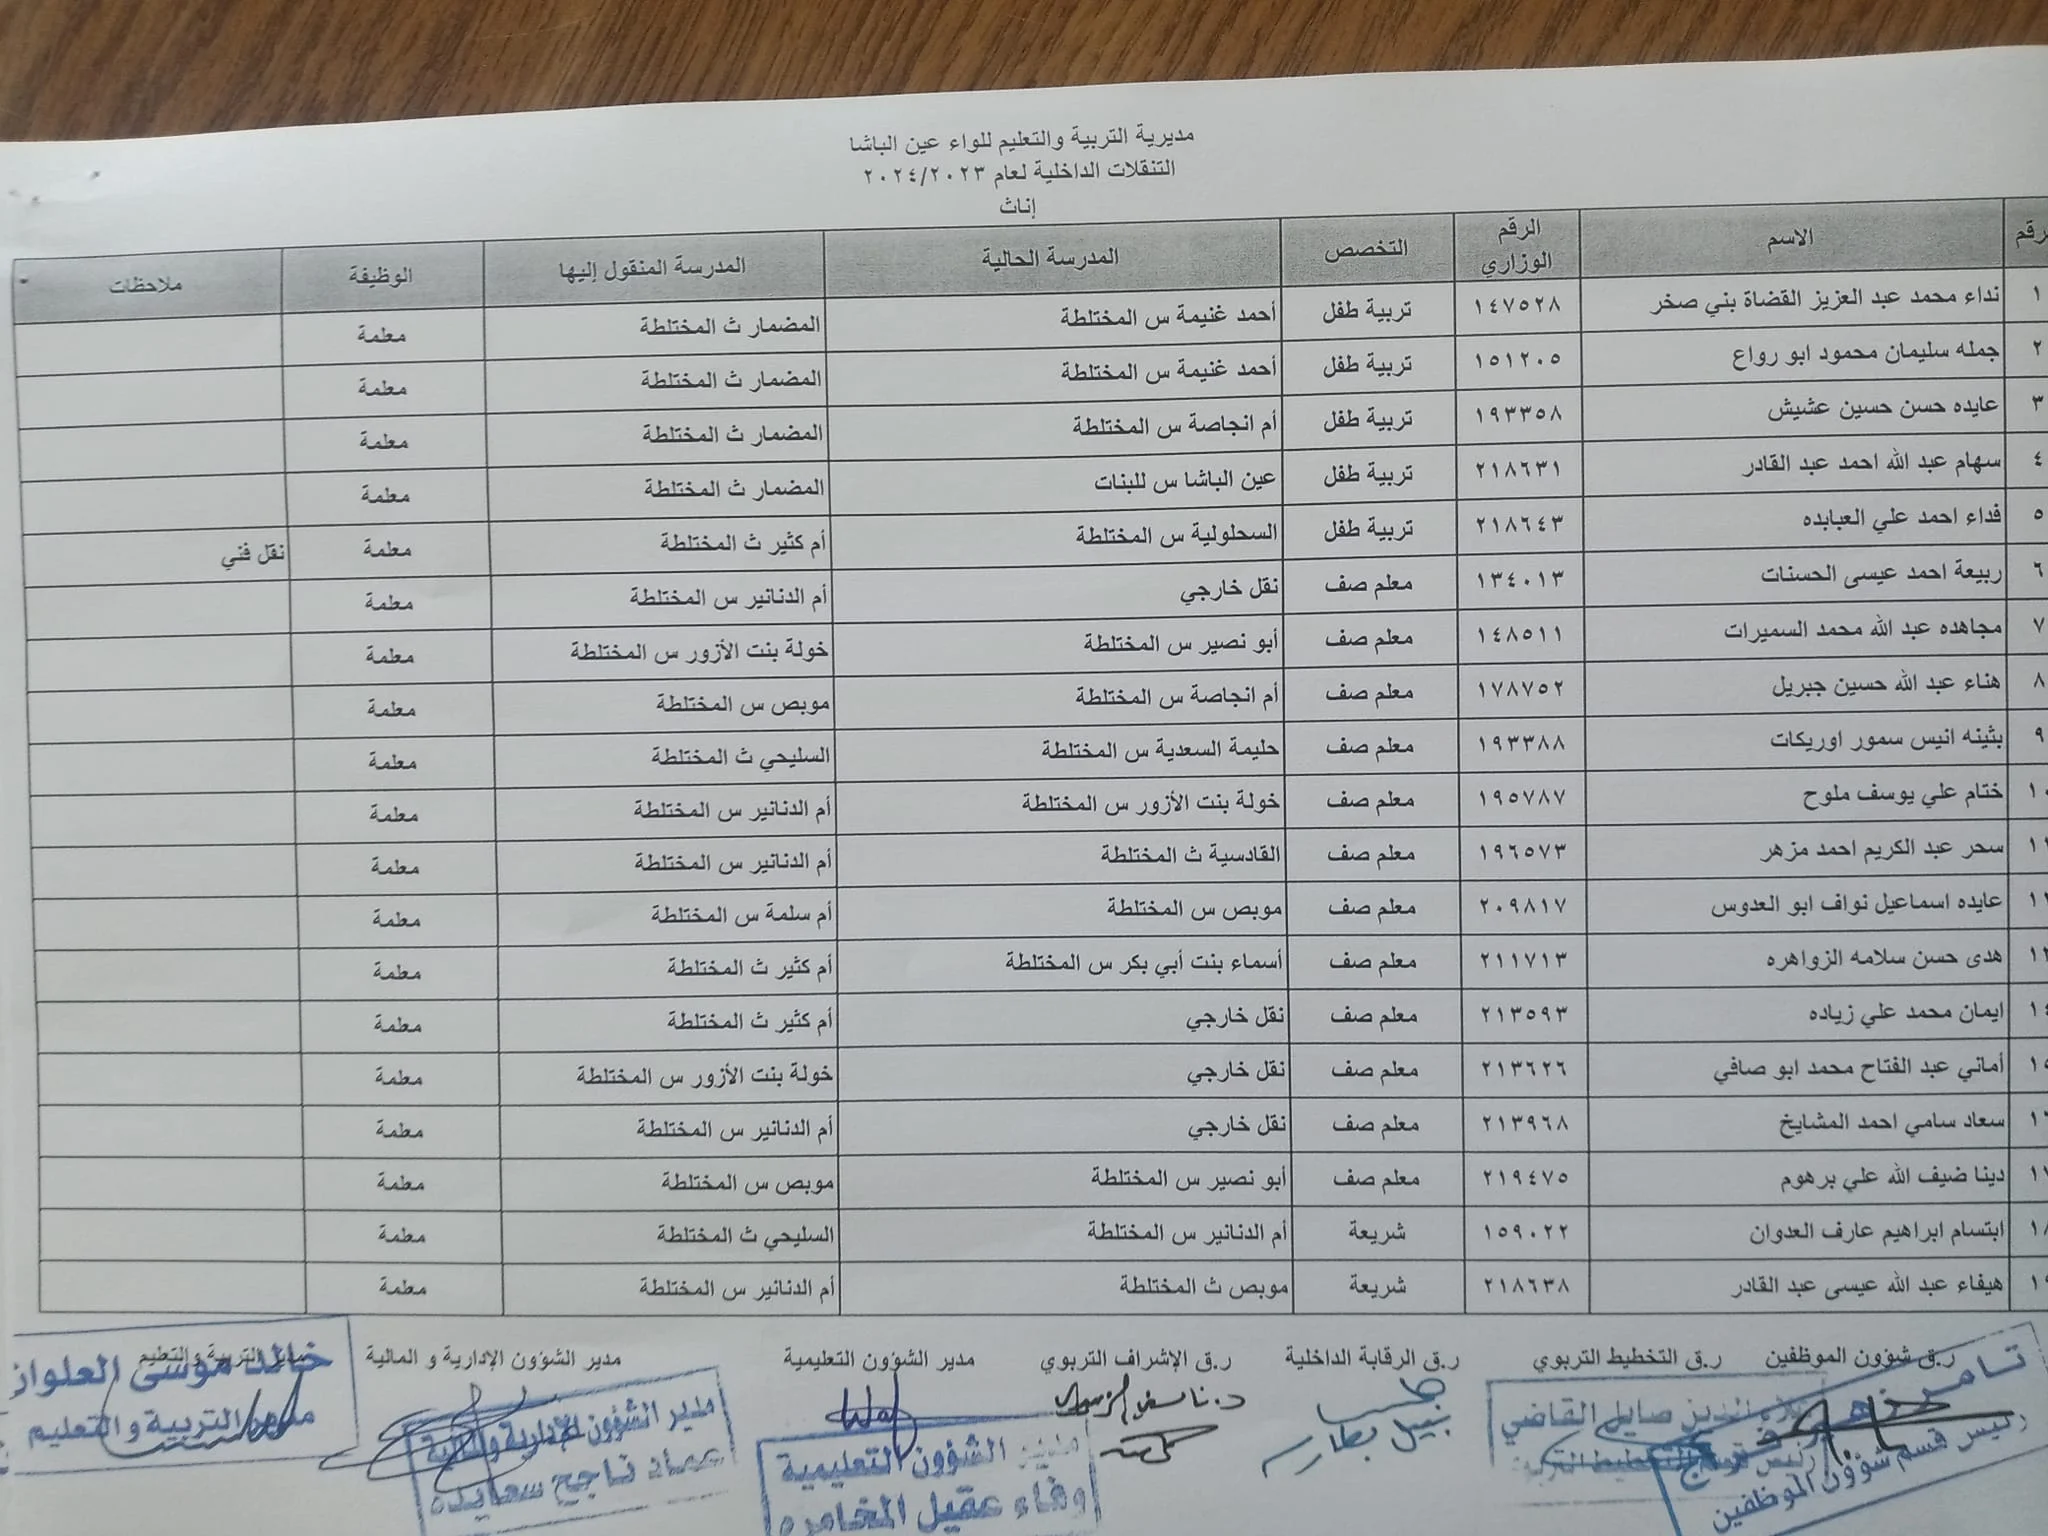 مديرية التربية والتعليم للواء عين الباشا
التنقلات الداخلية لعام ٢٠٢٤/٢٠٢٣
إناث
رقم الاسم الرقم الوزاري التخصص المدرسة الحالية المدرسة المنقول إليها الوظيفة ملاحظات
١ نداء محمد عبد العزيز القضاة بني صخر ١٤٧٥٢٨ تربية طفل أحمد غنيمة س المختلطة المضمار ث المختلطة معلمة
٢ جمله سليمان محمود ابو رواع ١٥١٢٠٥ تربية طفل أحمد غنيمة س المختلطة المضمار ث المختلطة معلمة
٣ عايده حسن حسين عشيش ١٩٣٣٥٨ تربية طفل أم انجاصة س المختلطة المضمار ث المختلطة معلمة
٤ سهام عبد الله احمد عبد القادر ٢١٨٦٣١ تربية طفل عين الباشا س للبنات المضمار ث المختلطة معلمة
٥ فداء احمد علي العبابده ٢١٨٦٤٣ تربية طفل السحلولية س المختلطة أم كثير ث المختلطة معلمة نقل فني
٦ ربيعة احمد عيسى الحسنات ١٣٤٠١٣ معلم صف نقل خارجي أم الدنانير س المختلطة معلمة
٧ مجاهده عبد الله محمد السميرات ١٤٨٥١١ معلم صف أبو نصير س المختلطة خولة بنت الأزور س المختلطة معلمة
٨ هناء عبد الله حسين جبريل ١٧٨٧٥٢ معلم صف أم انجاصة س المختلطة موبص س المختلطة معلمة
٩ بثينه انيس سمور اوريكات ١٩٣٣٨٨ معلم صف حليمة السعدية س المختلطة السليحي ث المختلطة معلمة
١٠ ختام علي يوسف ملوح ١٩٥٧٨٧ معلم صف خولة بنت الأزور س المختلطة أم الدنانير س المختلطة معلمة
١١ سحر عبد الكريم احمد مزهر ١٩٦٥٧٣ معلم صف القادسية ث المختلطة أم الدنانير س المختلطة معلمة
١٢ عايده اسماعيل نواف ابو العدوس ٢٠٩٨١٧ معلم صف موبص س المختلطة أم سلمة س المختلطة معلمة
١٣ هدى حسن سلامه الزواهره ٢١١٧١٣ معلم صف أسماء بنت أبي بكر س المختلطة أم كثير ث المختلطة معلمة
١٤ ايمان محمد علي زياده ٢١٣٥٩٣ معلم صف نقل خارجي أم كثير ث المختلطة معلمة
١٥ أماني عبد الفتاح محمد ابو صافي ٢١٣٦٢٦ معلم صف نقل خارجي خولة بنت الأزور س المختلطة معلمة
١٦ سعاد سامي احمد المشايخ ٢١٣٩٦٨ معلم صف نقل خارجي أم الدنانير س المختلطة معلمة
١٧ دينا ضيف الله علي برهوم ٢١٩٤٧٥ معلم صف أبو نصير س المختلطة موبص س المختلطة معلمة
١٨ ابتسام ابراهيم عارف العدوان ١٥٩٠٢٢ شريعة أم الدنانير س المختلطة السليحي ث المختلطة معلمة
١٩ هيفاء عبد الله عيسى عبد القادر ٢١٨٦٣٨ شريعة موبص ث المختلطة أم الدنانير س المختلطة معلمة
ر.ق شؤون الموظفين ر.ق التخطيط التربوي ر.ق الرقابة الداخلية ر.ق الإشراف التربوي مدير الشؤون التعليمية مدير الشؤون الإدارية و المالية مدير التربية والتعليم
تامر
رئيس قسم شؤون الموظفين
صايل القاضي
رئيس قسم التخطيط التربوي
نبيل
مدير الشؤون التعليمية
وفاء عقيل المخامره
مدير الشؤون الإدارية والمالية
عماد ناجح سعايده
خالد موسى العلوان
مدير التربية والتعليم